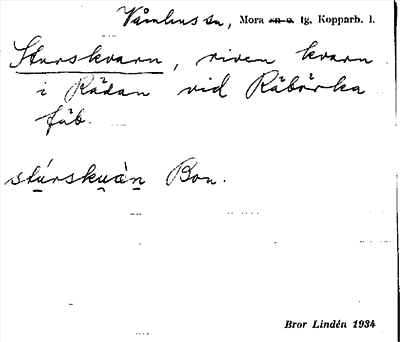 Våmhus sn, Mora sn o. tg, Kopparb. l.
Sturskvarn, riven kvarn
i Rådan vid Råbärka
fäb.
stúrskuàn Bon.
Bror Lindén 1934